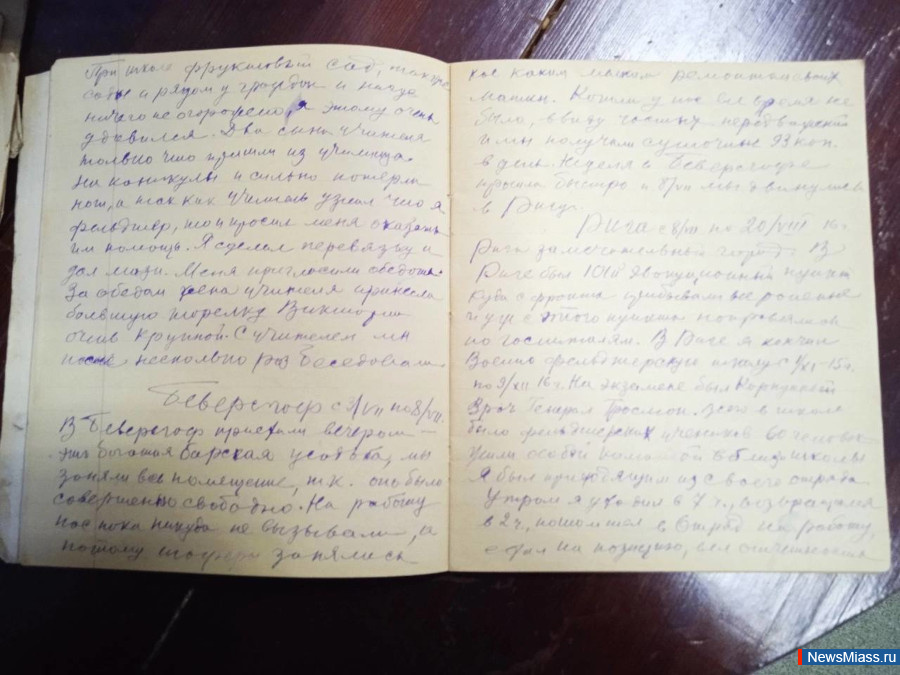 При школе фруктовый сад, такие
сады и рядом у граждан и нигде
ничего не огорожено, я этому очень
удивился. Два сына учителя
только что пришли из училища
на каникулы и сильно потерли
ноги, а так как учитель узнал что я
фельдшер, то и просил меня оказать
им помощь. Я сделал перевязку и
дал мази. Меня пригласили обедать.
За обедом жена учителя принесла
большую тарелку Виктории
очень крупной. С учителем мы
после несколько раз беседовали.
Беверсгоф с 3/VII по 8/VII.
В Беверсгоф приехали вечером
это большая барская усадьба, мы
заняли все помещение, т.к. оно было
совершенно свободно. На работу
нас пока никуда не вызывали, а
потому шоферы занялись
ремонтом своих
машин. Кухни у нас все время не
было, ввиду частых передвижений
и мы получали суточные 93 коп.
в день. Неделя в Беверсгофе
прошла быстро и 8/VII мы двинулись
в Ригу.
Рига с 8/VII по 20/VIII 16г.
Рига замечательный город. В
Риге был 101й Эвакуационный пункт
куда с фронта прибывали все раненые
и уже с этого пункта направлялись
по госпиталям. В Риге я кончил
Военно фельдшерскую школу с 1/XI-15г.
по 9/XII 16г. На экзамене был Корпусной
Врач Генерал Всего в школе
было фельдшерских учеников 60 человек
жили особой командой вблизи школы
Я был приходящим из своего отряда
Утром я уходил в 7 ч., возвращался
в 2 ч, потом шел в Отряд на работу,
ездил на позицию, вел
NewsMiass.ru